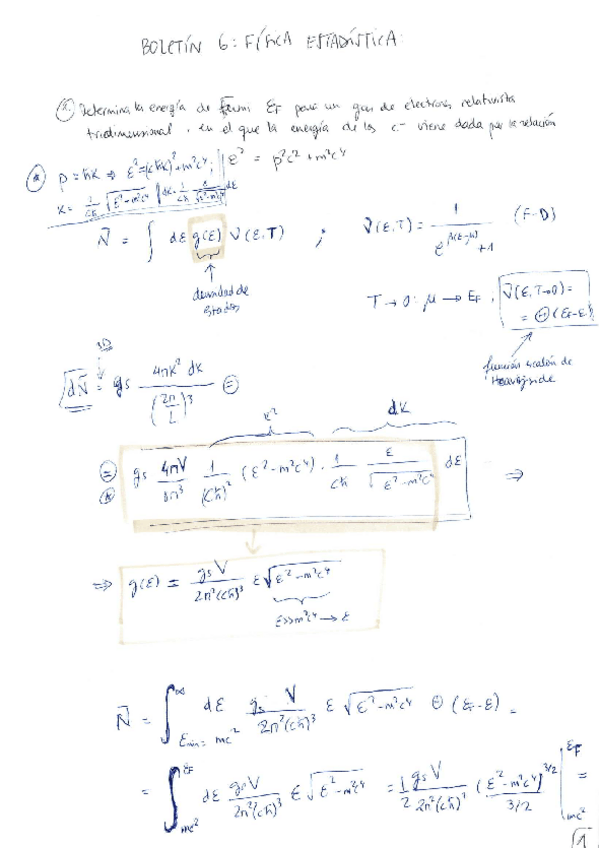 BOLETÍN 6: FÍSICA ESTADÍSTICA
Determina la energía de Fermi E_F para un gas de electrones relativista
tridimensional, en el que la energía de los e⁻ viene dada por la relación
ε² = p²c² + m²c⁴
(*) p = ħk ⇒ ε² = (cħk)² + m²c⁴;
k = 1/(cħ) √(ε² − m²c⁴) dk = 1/(cħ) ε/√(ε² − m²c⁴) dε
N̄ = ∫ dε g(ε) ν̄(ε,T) ; ν̄(ε,T) = 1/(e^{β(ε−μ)} + 1) (F-D)
densidad de
estados
T → 0: μ → E_F, ν̄(ε, T→0) =
= Θ(E_F − ε)
función escalón de
Heaviside
3D
dN̄ = gs 4πk² dk / (2π/L)³ =
k² dk
= (*) gs 4πV/8π³ 1/(cħ)² (ε² − m²c⁴) · 1/(cħ) ε/√(ε² − m²c⁴) dε ⇒
⇒ g(ε) = gs V/(2π²(cħ)³) ε √(ε² − m²c⁴)
ε >> m²c⁴ → ε
N̄ = ∫_{ε_min = mc²}^{∞} dε gs V/(2π²(cħ)³) ε √(ε² − m²c⁴) Θ(E_F − ε) =
= ∫_{mc²}^{E_F} dε gs V/(2π²(cħ)³) ε √(ε² − m²c⁴) = 1/2 gs V/(2π²(cħ)³) (ε² − m²c⁴)^{3/2}/(3/2) |_{mc²}^{E_F} =
1